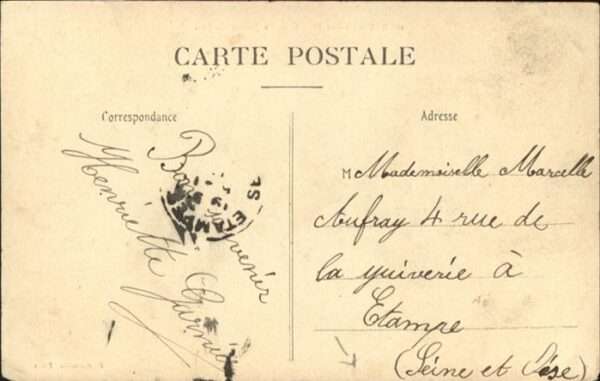 CARTE POSTALE
Correspondance
Adresse
Bon
venir
Henriette Garnier
ETAMPES
M Mademoiselle Marcelle
Aufray 4 rue de
la Juiverie à
Etampe
(Seine et Oise)